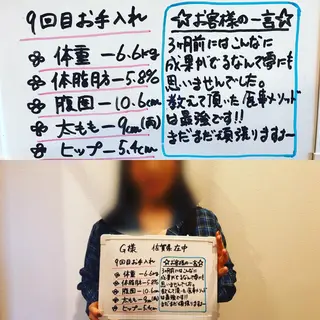 9回目お手入れ
体重－6.6kg
体脂肪－5.8%
腹囲－10.6cm
太もも－9cm(両)
ヒップ－5.4cm
☆お客様の一言☆
3ヶ月前にはこんなに
成果がでるなんて夢にも
思いませんでした。
教えて頂いた食事メソッド
は最強です!!
まだまだ頑張りますよー
G様 佐賀県在中
9回目お手入れ
体重－6.6kg
体脂肪－5.8%
腹囲－10.6cm
太もも－9cm(両)
ヒップ－5.4cm
☆お客様の一言☆
3ヶ月前にはこんなに
成果がでるなんて夢にも
思いませんでした。
教えて頂いた食事メソッド
は最強です!!
まだまだ頑張りますよー